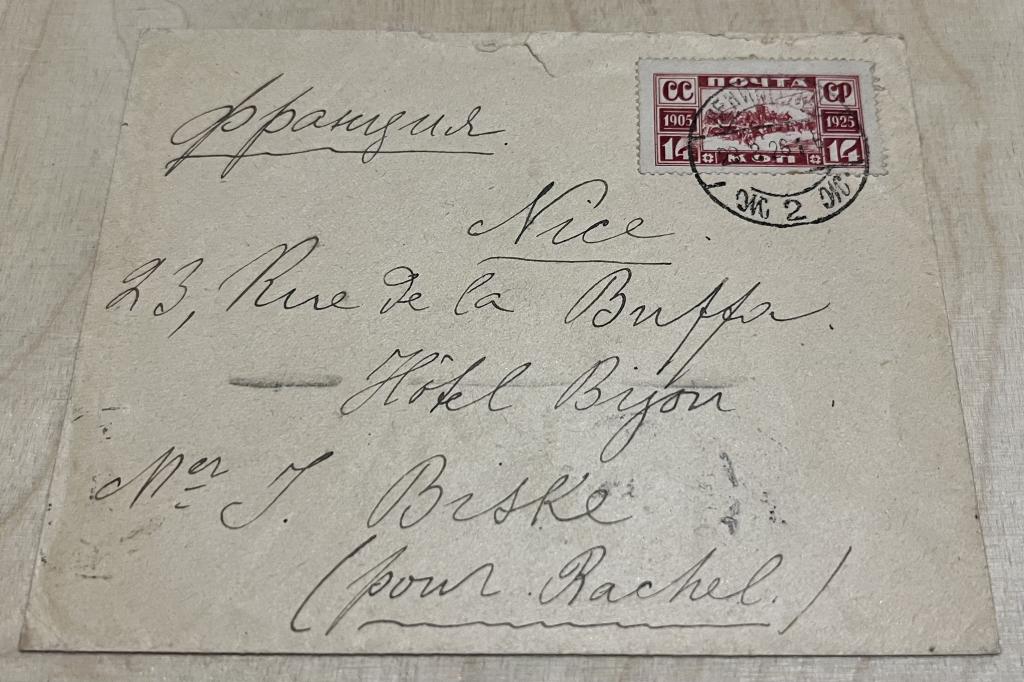 ПОЧТА
СС СР
1905 1925
14 КОП 14
2
франция
Nice.
23, Rue de la Buffa.
Hôtel Bijou
Mer J. Biske
(pour Rachel.)